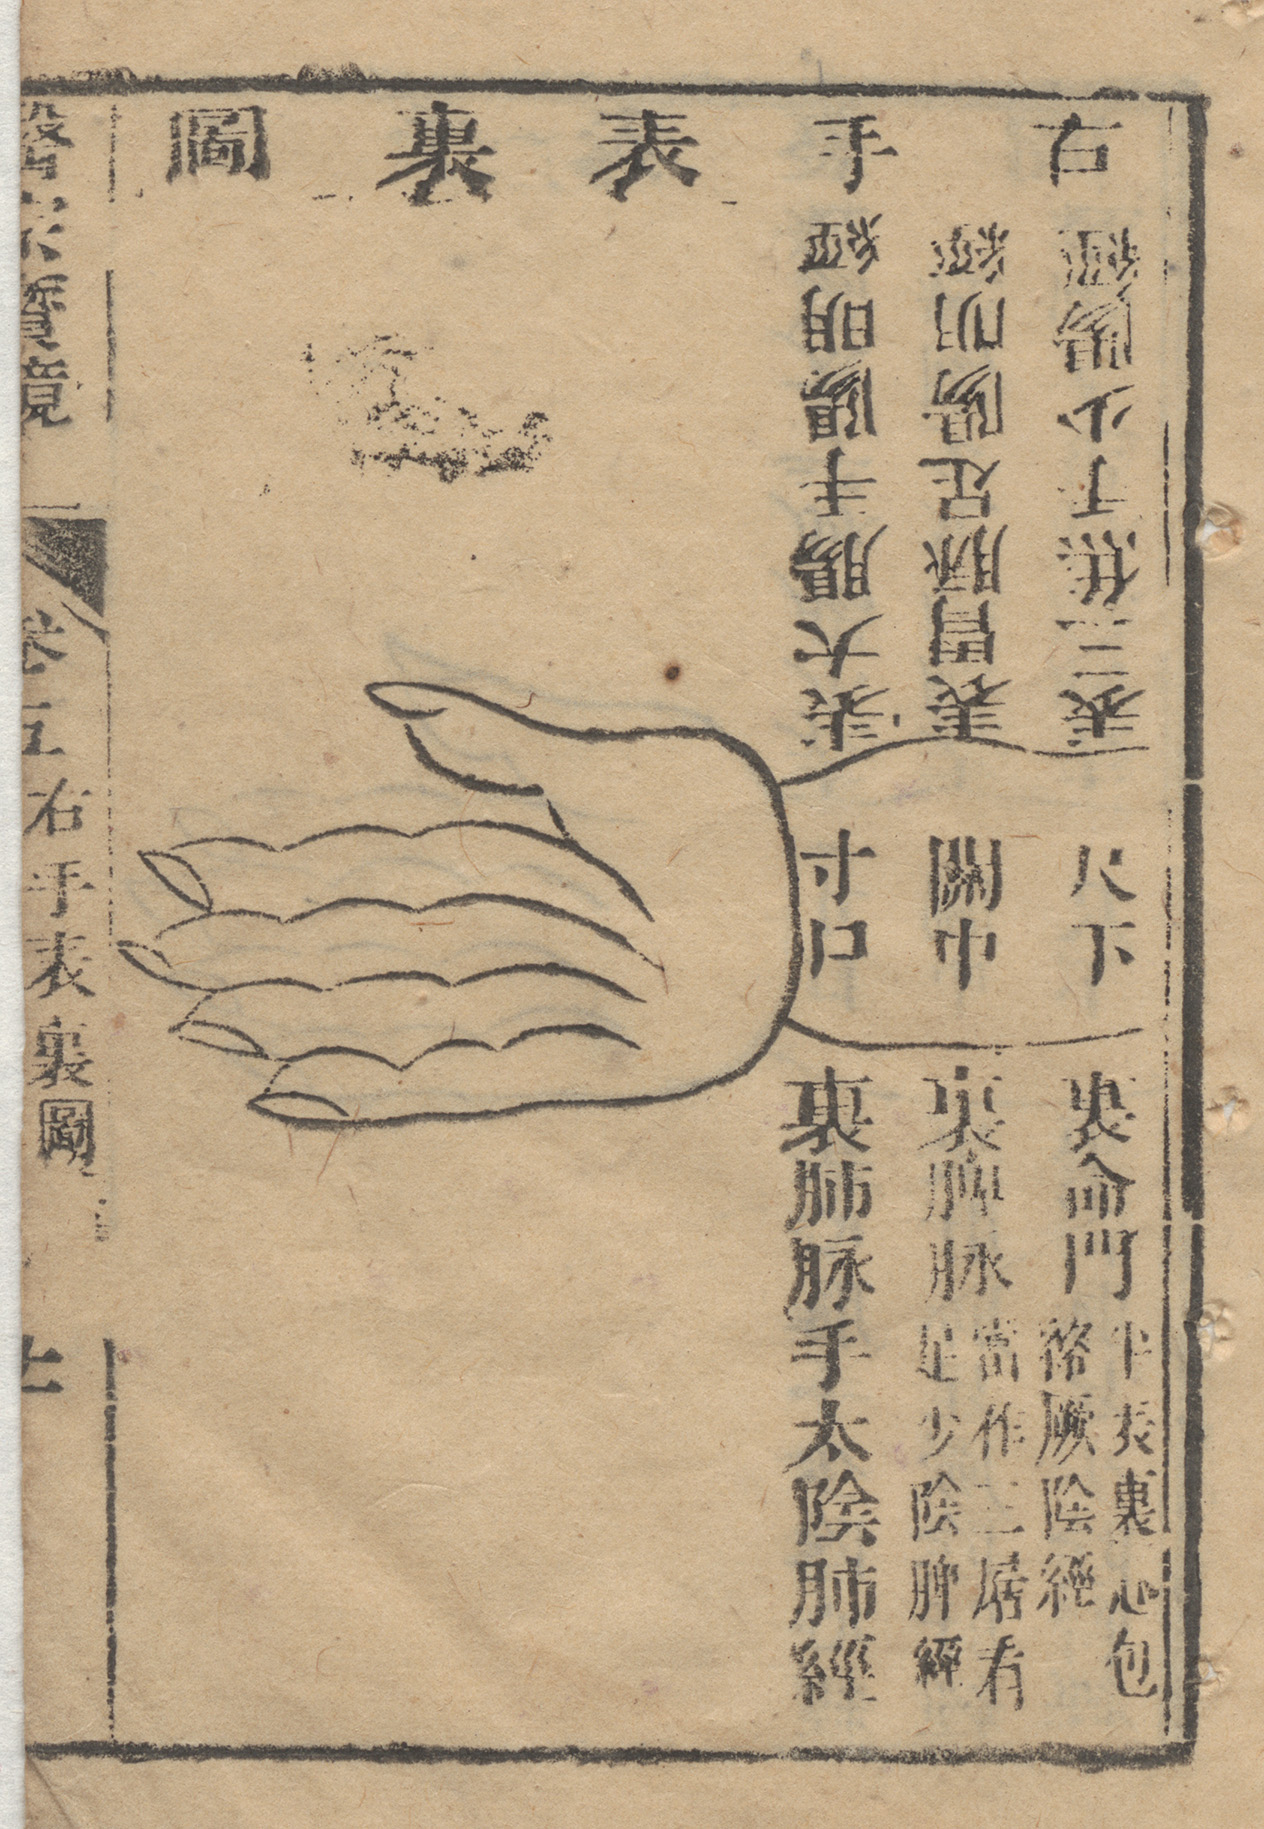 右手表裏圖
表三焦手少陽經
尺下
裏命門
半表裏心包
絡厥陰經
表胃脉足陽明經
關中
裏脾脉
當作三看
足少陰脾經
表大腸手陽明經
寸口
裏肺脉手太陰肺經
醫宗寶鏡
卷五
右手表裏圖
十一